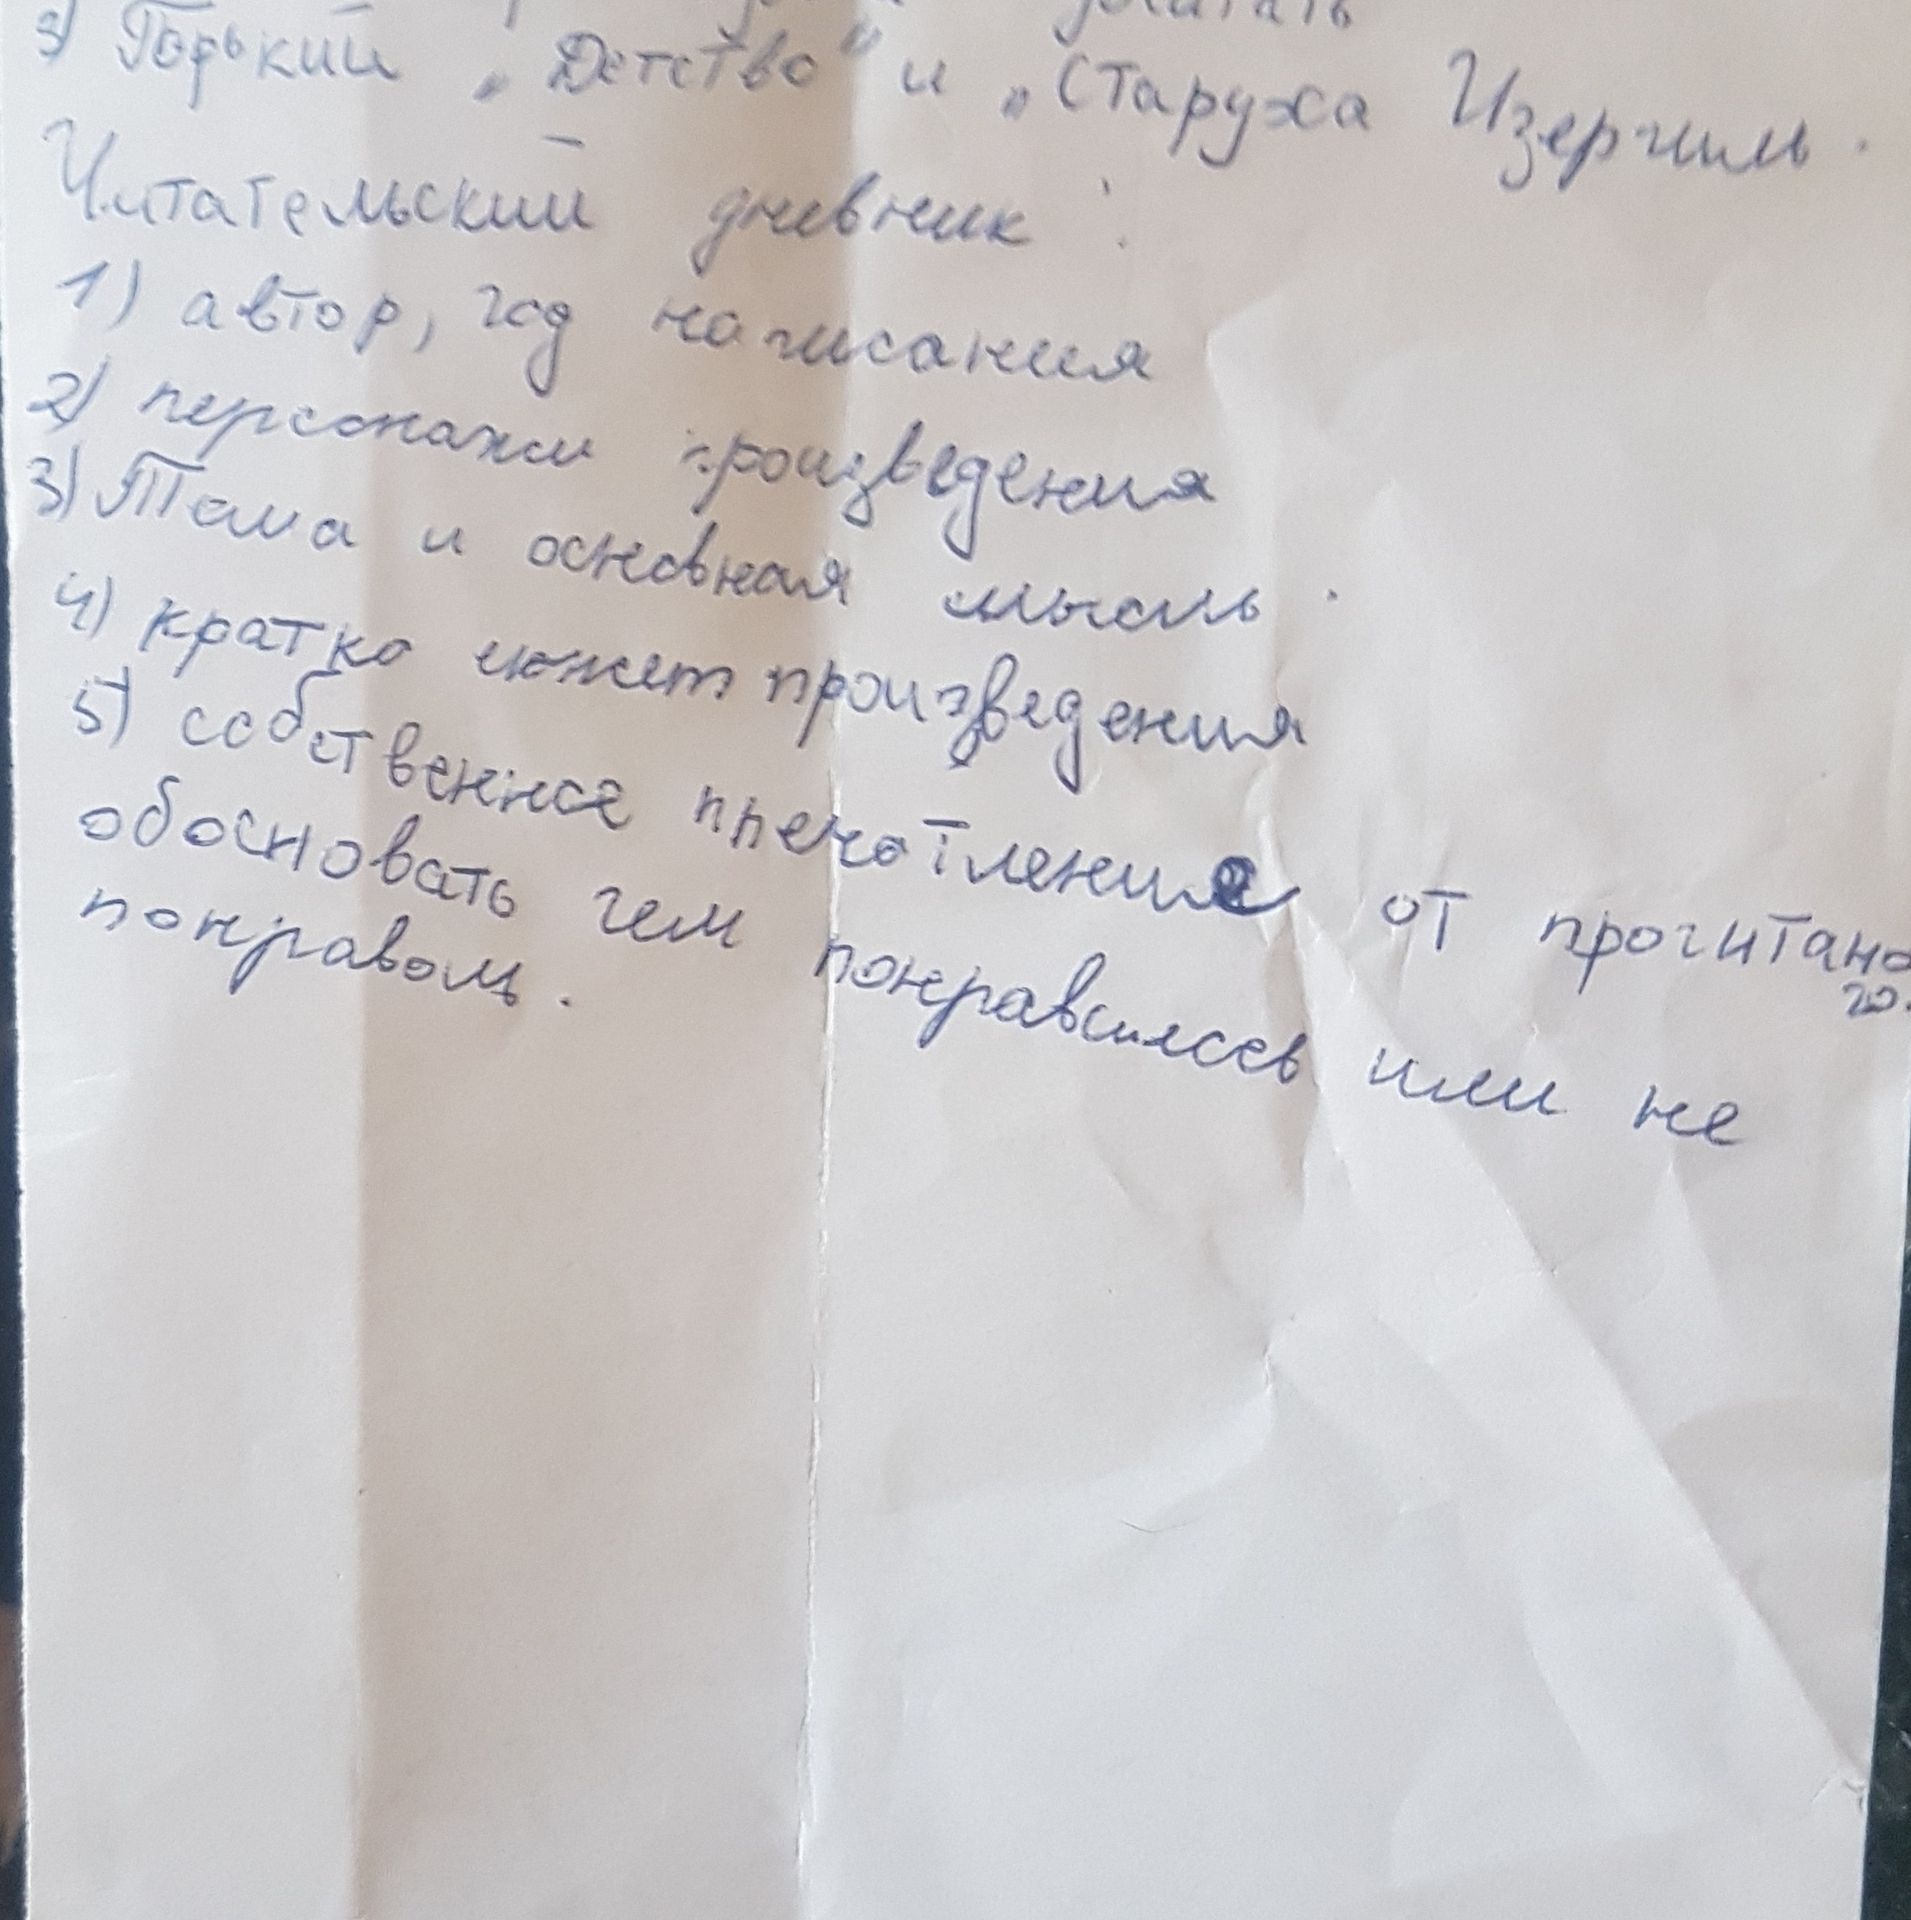 3) Горький „Детство" и „Старуха Изергиль.
Читательский дневник:
1) автор, год написания
2) персонажи произведения
3) Тема и основная мысль.
4) кратко сюжет произведения
5) собственное ппечатление от прочитано
го.
обосновать чем понравилсеь или не
понравом.